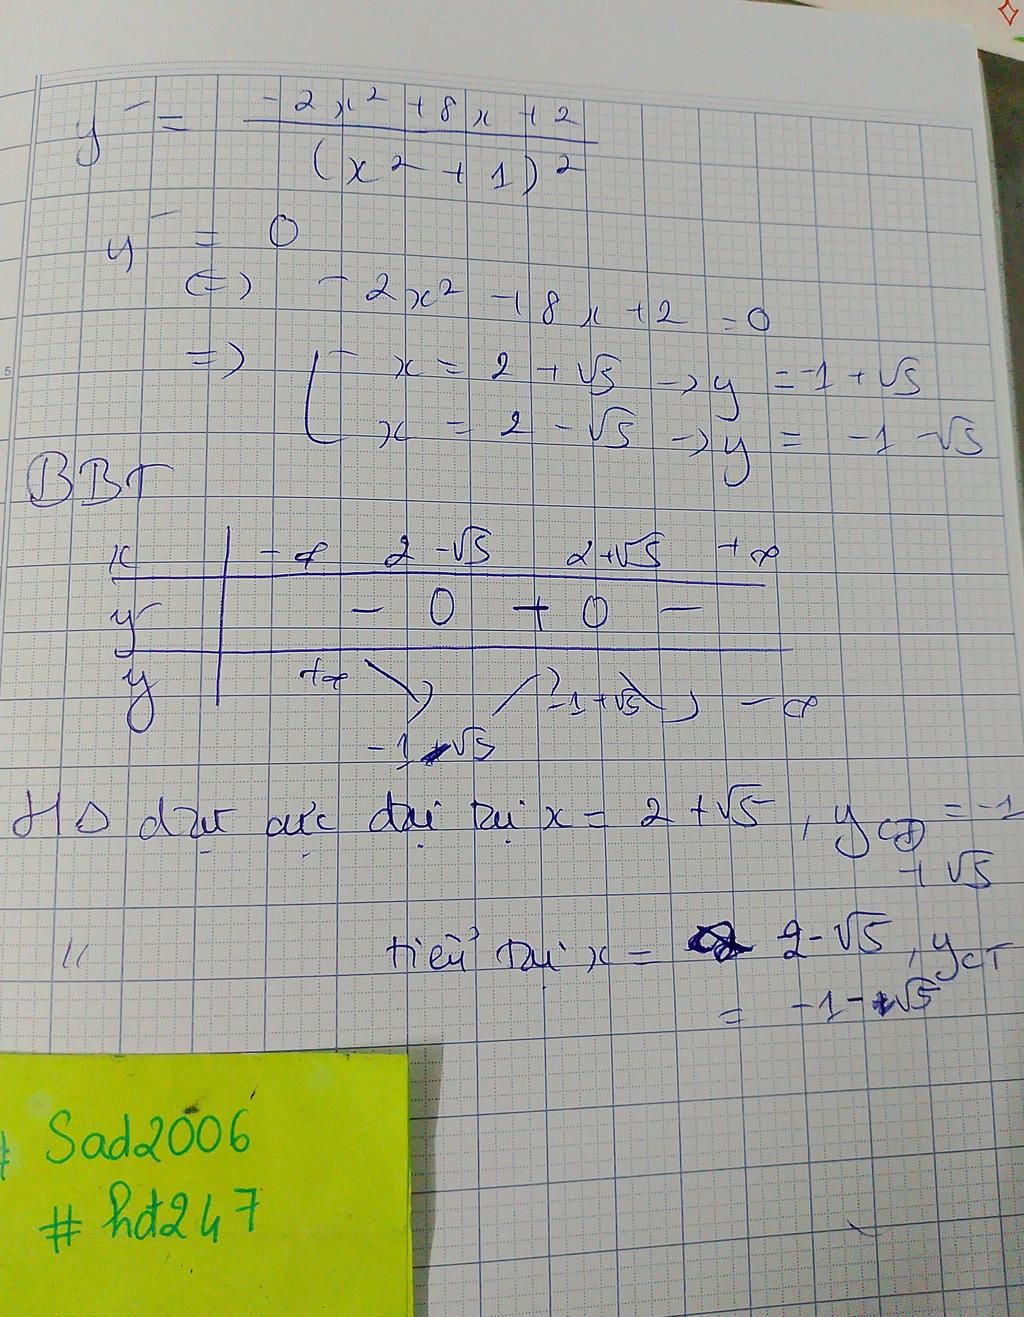 y' = -2x² + 8x + 2 / (x² + 1)²
y' = 0
<=> -2x² + 8x + 2 = 0
=> [ x = 2 + √5 -> y = -1 + √5
x = 2 - √5 -> y = -1 - √5
BBT
x | -∞ 2 - √5 2 + √5 +∞
y' | - 0 + 0 -
y | +∞ -1 + √5 -∞
-1 - √5
HS đạt cực đại tại x = 2 + √5, yCĐ = -1
+ √5
" tiểu tại x = 2 - √5, yCT
= -1 - √5
# Sad2006
# hđ247
5